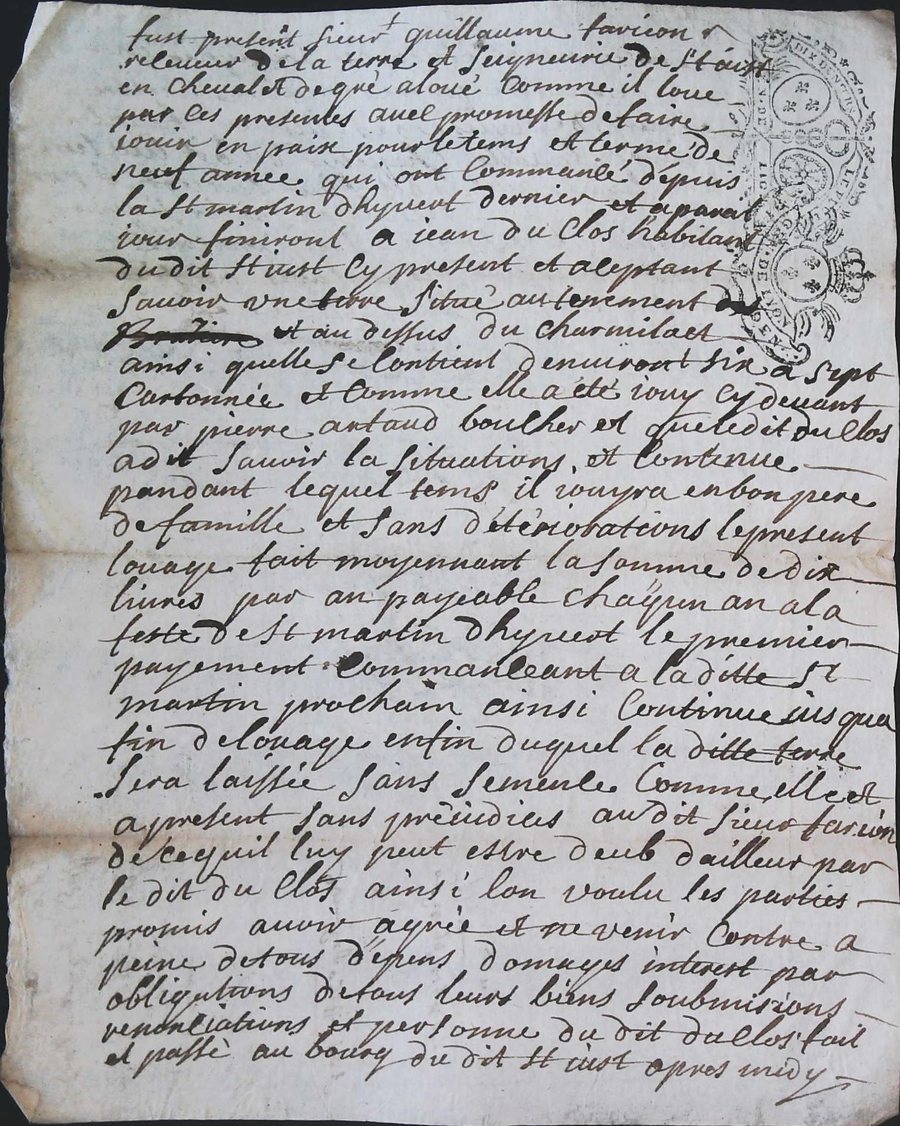 fust present sieur guillaume farcion
releveur de la terre et seigneurie de st iust
en Chevalet de gré a loué Comme il loue
par Ces presentes avec promesse de faire
iouir en paix pour le tems et terme de
neuf année qui ont Commancé depuis
la st martin dhyvert dernier et a parail
iour finiront a jean du Clos habitant
du dit st iust Cy present et aceptant
savoir vne terre situé au terement
et au dessus du Charmilaet
ainsi quelle se Contient denviront six a sept
Cartonnée et Comme elle a été iouy Cy devant
par pierre artaud boulher et que ledit du Clos
a dit savoir la situations et Contenue
pandant lequel tems il iouyra en bon pere
de famille et sans détériorations le present
louage fait moyennant la somme de dix
livres par an payeable Chaqun an a la
feste de st martin dhyvert le premier
payement Commanceant a la ditte st
martin prochain ainsi Continue iusqua
fin de louage enfin duquel la ditte terre
sera laissée sans semence Comme elle est
a present sans préiudices audit sieur farcion
de ce quil luy peut estre deub dailleur par
le dit du Clos ainsi lon voulu les parties
promis avoir agrée et ne venir Contre a
peine de tous dépens domages interest par
obligations de tous leurs biens soubmisions
renonciations et personne du dit du Clos fait
et passé au bourg du dit st iust apres midy